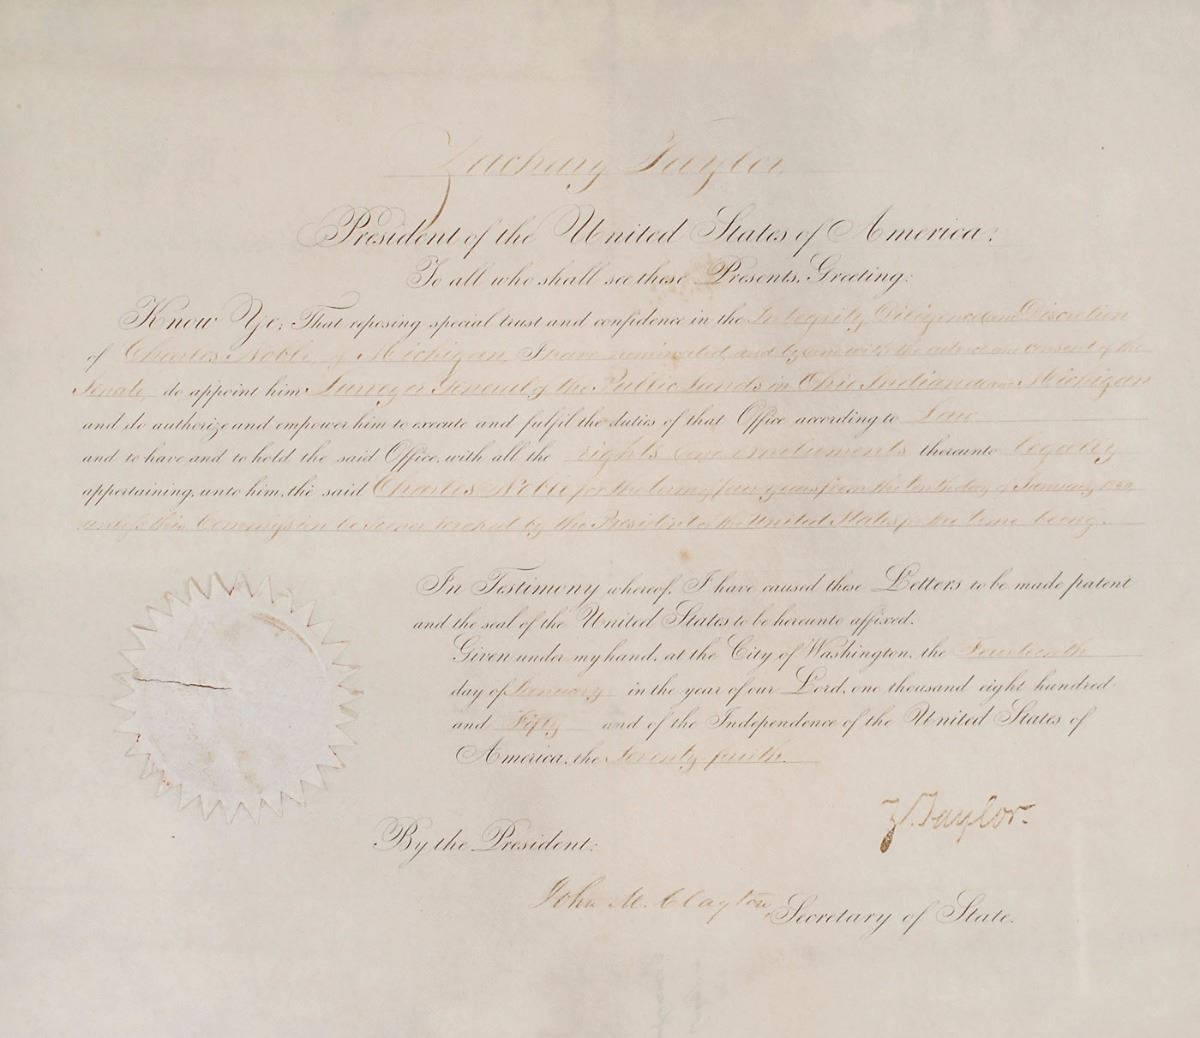 Zachary Taylor,
President of the United States of America.
To all who shall see these Presents, Greeting:
Know Ye: That reposing special trust and confidence in the Integrity Diligence and Discretion
of Charles Noble, of Michigan I have nominated, and by and with the advice and consent of the
Senate do appoint him Surveyor General of the Public Lands in Ohio Indiana and Michigan
and do authorize and empower him to execute and fulfil the duties of that Office according to Law
and to have and to hold the said Office, with all the rights and emoluments thereunto legally
appertaining, unto him, the said Charles Noble for the term of four years from the tenth day of January
unless this Commission be sooner revoked by the President of the United States for the time being.
In Testimony whereof, I have caused these Letters to be made patent
and the seal of the United States to be hereunto affixed.
Given under my hand, at the City of Washington, the Fourteenth
day of January in the year of our Lord, one thousand eight hundred
and Fifty and of the Independence of the United States of
America, the Seventy fourth.
Z. Taylor.
By the President:
John M. Clayton, Secretary of State.